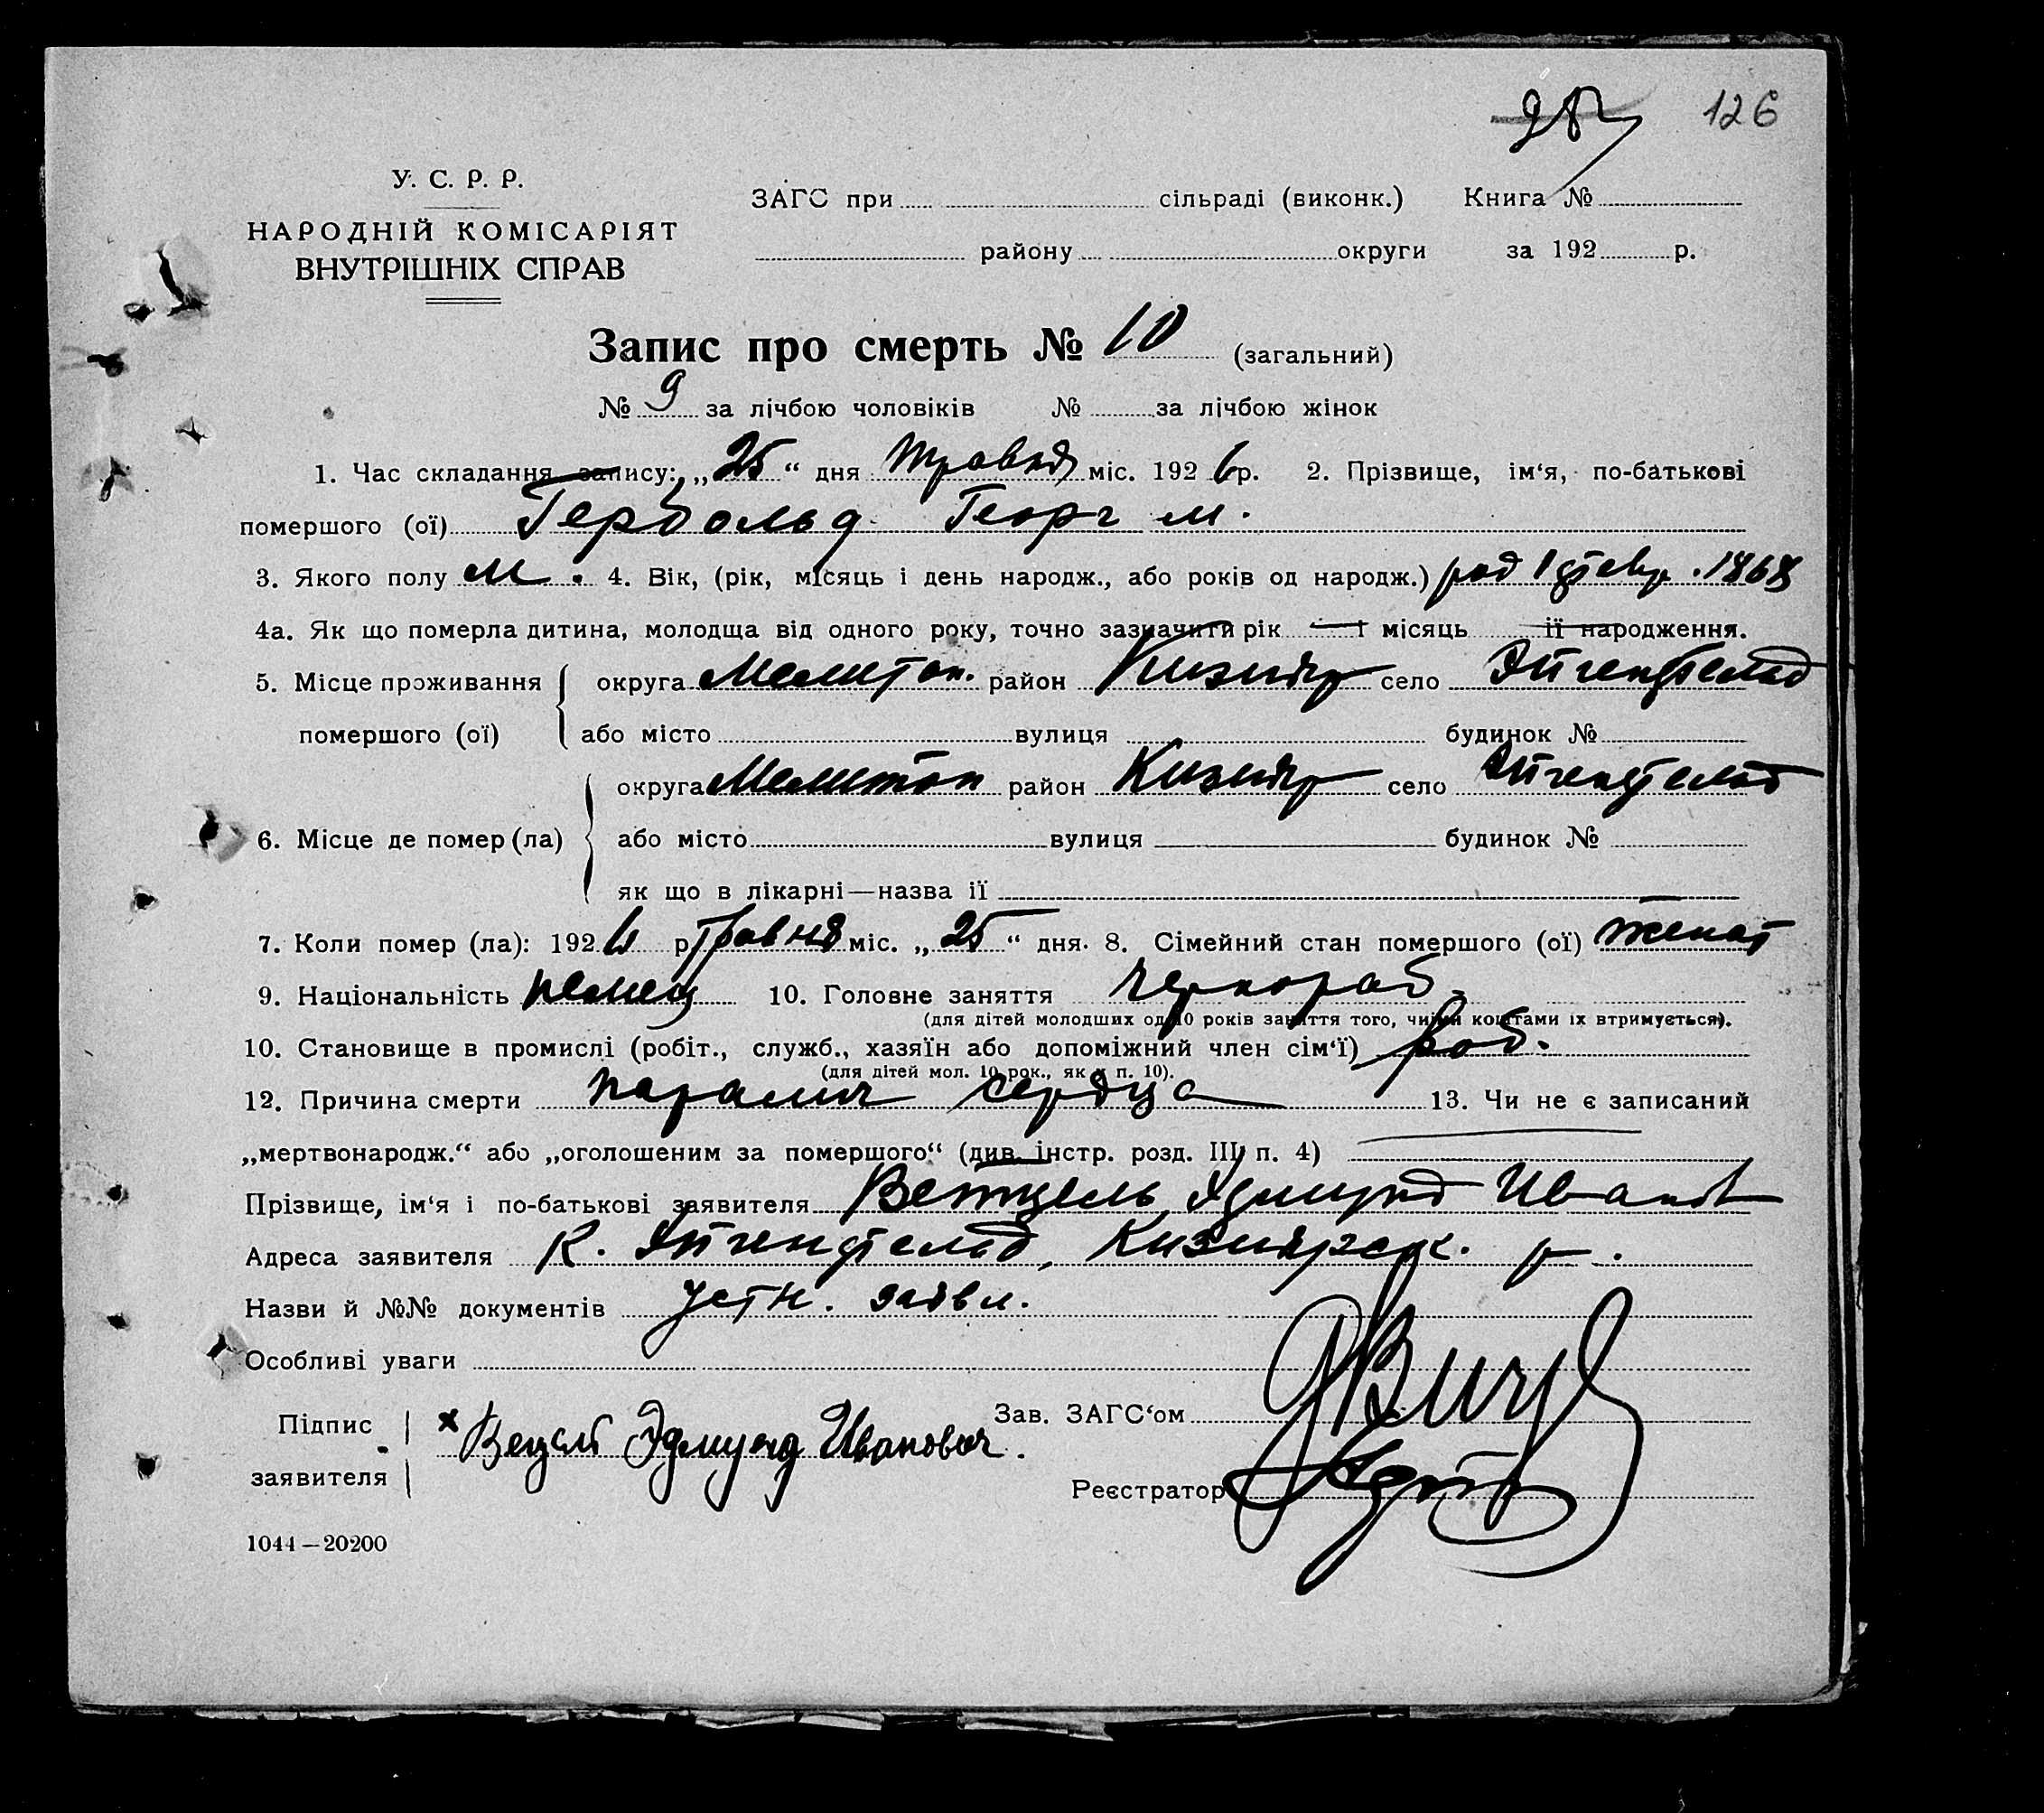 126
У. С. Р. Р.
НАРОДНІЙ КОМІСАРІЯТ
ВНУТРІШНІХ СПРАВ
ЗАГС при сільраді (виконк.) Книга №
району округи за 192 р.
Запис про смерть № 10 (загальний)
№ 9 за лічбою чоловіків № за лічбою жінок
1. Час складання запису: „25“ дня травня міс. 1926 р. 2. Прізвище, ім‘я, по-батькові
помершого (ої) Гербольд Георг М.
3. Якого полу м. 4. Вік, (рік, місяць і день народж., або років од народж.) род 1 февр. 1868
4а. Як що померла дитина, молодща від одного року, точно зазначити рік і місяць її народження.
5. Місце проживання помершого (ої) округа Мелитоп. район Кизияр село Эйгенфельд
або місто вулиця будинок №
6. Місце де помер (ла) округа Мелитоп район Кизияр село Эйгенфельд
або місто вулиця будинок №
як що в лікарні—назва її
7. Коли помер (ла): 1926 р травня міс. „25“ дня. 8. Сімейний стан помершого (ої) женат
9. Національність немец 10. Головне заняття чернораб.
(для дітей молодших од 10 років заняття того, чиїми коштами їх втримується).
10. Становище в промислі (робіт., служб., хазяїн або допоміжний член сім‘ї) раб.
(для дітей мол. 10 рок., як у п. 10).
12. Причина смерти паралич сердца 13. Чи не є записаний
„мертвонародж.“ або „оголошеним за помершого“ (див. інстр. розд. III п. 4)
Прізвище, ім‘я і по-батькові заявителя Ветцель Эдмунд Иванов
Адреса заявителя к. Эйгенфельд, Кизиярск. р.
Назви й №№ документів устн. заявл.
Особливі уваги
Підпис заявителя х Вецель Эдмунд Иванович.
Зав. ЗАГС‘ом
Реєстратор
1044—20200